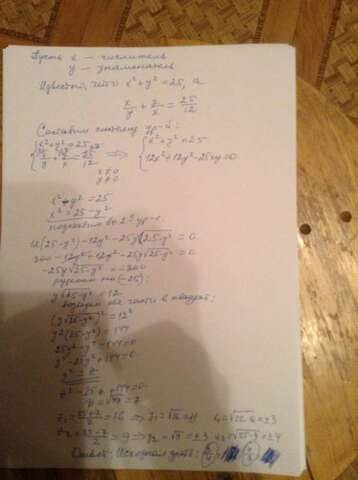 Пусть x — числитель
y — знаменатель
Известно, что x² + y² = 25, а
x/y + y/x = 25/12
Составим систему ур-й:
{ x² + y² = 25 { x² + y² = 25
{ x/y + y/x = 25/12 ⟹ { 12x² + 12y² - 25xy = 0
x ≠ 0
y ≠ 0
x² + y² = 25
x² = 25 - y²
во 2 ур-е.
12(25-y²) - 12y² - 25y√25-y² = 0
300 - 12y² + 12y² - 25y√25-y² = 0
-25y√25-y² = -300
на (-25):
y√25-y² = 12
возведем обе части в квадрат:
(y√25-y²)² = 12²
y²(25-y²) = 144
25y² - y⁴ - 144 = 0
y⁴ - 25y² + 144 = 0
y² = z
z² - 25z + 144 = 0
z₁ = 25+7/2 = 16 ⟹ y₁ = √16 = ±4
z₂ = 25-7/2 = 9 ⟹ y₂ = √9 = ±3
Ответ: Исходная дробь: